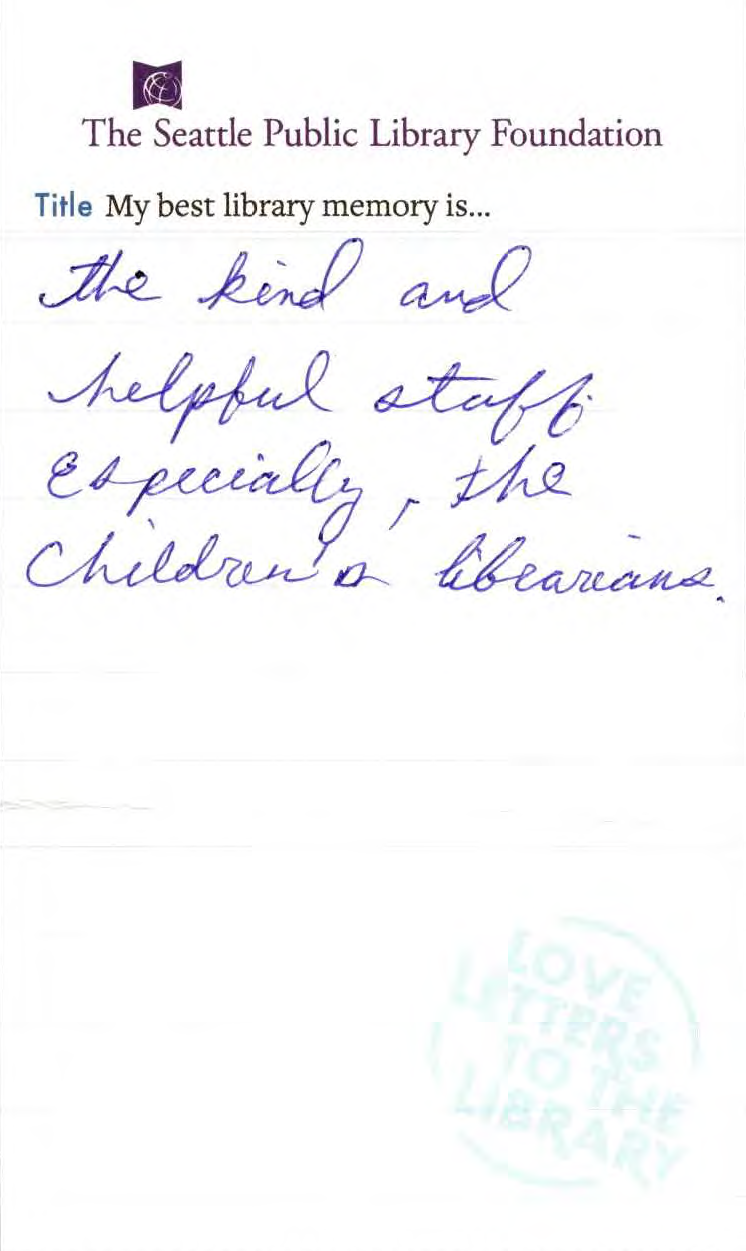 The Seattle Public Library Foundation
Title My best library memory is...
the kind and
helpful staff.
Especially, the
Children's librarians.
LOVE
LETTERS
TO THE
LIBRARY